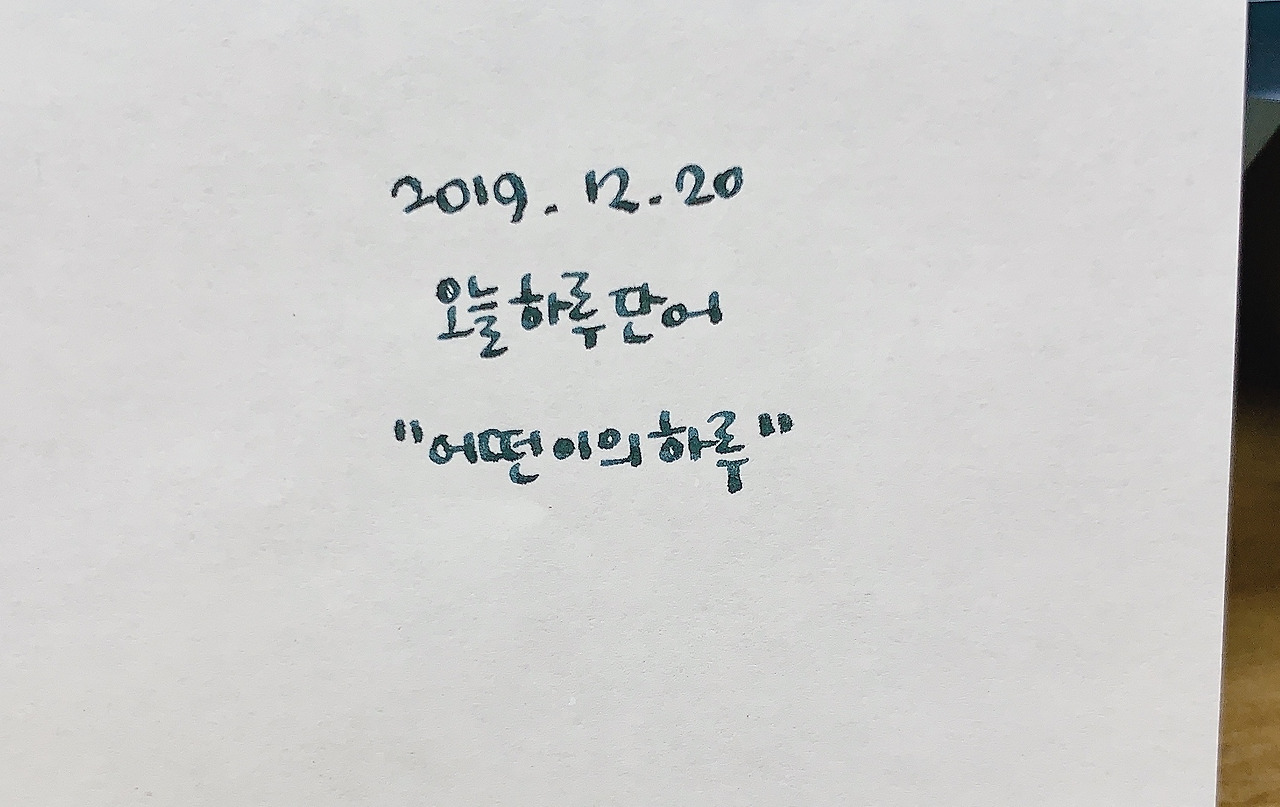 2019. 12. 20
오늘 하루 단어
"어떤이의 하루"